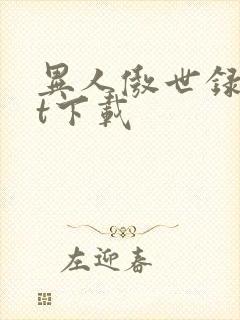 異人傲世録
t下載
左迎春